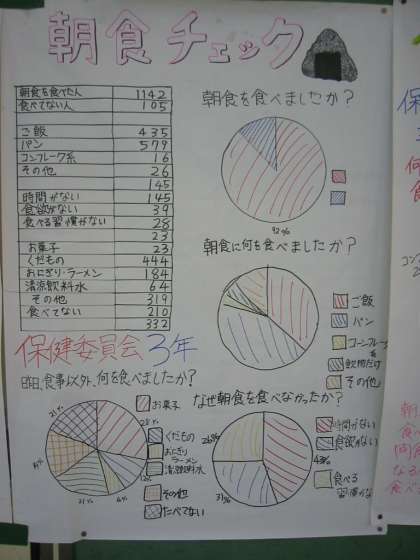 朝食チェック
朝食を食べた人 1142
食べてない人 105
ご飯 435
パン 579
コンフレーク系 16
その他 26
145
時間がない 145
食欲がない 39
食べる習慣がない 28
23
お菓子 23
くだもの 444
おにぎり・ラーメン 184
清涼飲料水 64
その他 319
食べてない 210
332
保健委員会 3年
朝食を食べましたか?
92%
朝食に何を食べましたか?
ご飯
パン
コーンフレーク系
飲物だけ
その他
昨日、食事以外、何を食べましたか?
お菓子
くだもの
おにぎり
ラーメン
清涼飲料水
その他
たべてない
21%
21%
4%
なぜ朝食を食べなかったか?
時間がない
食欲がない
食べる
習慣がない
26%
31%
43%